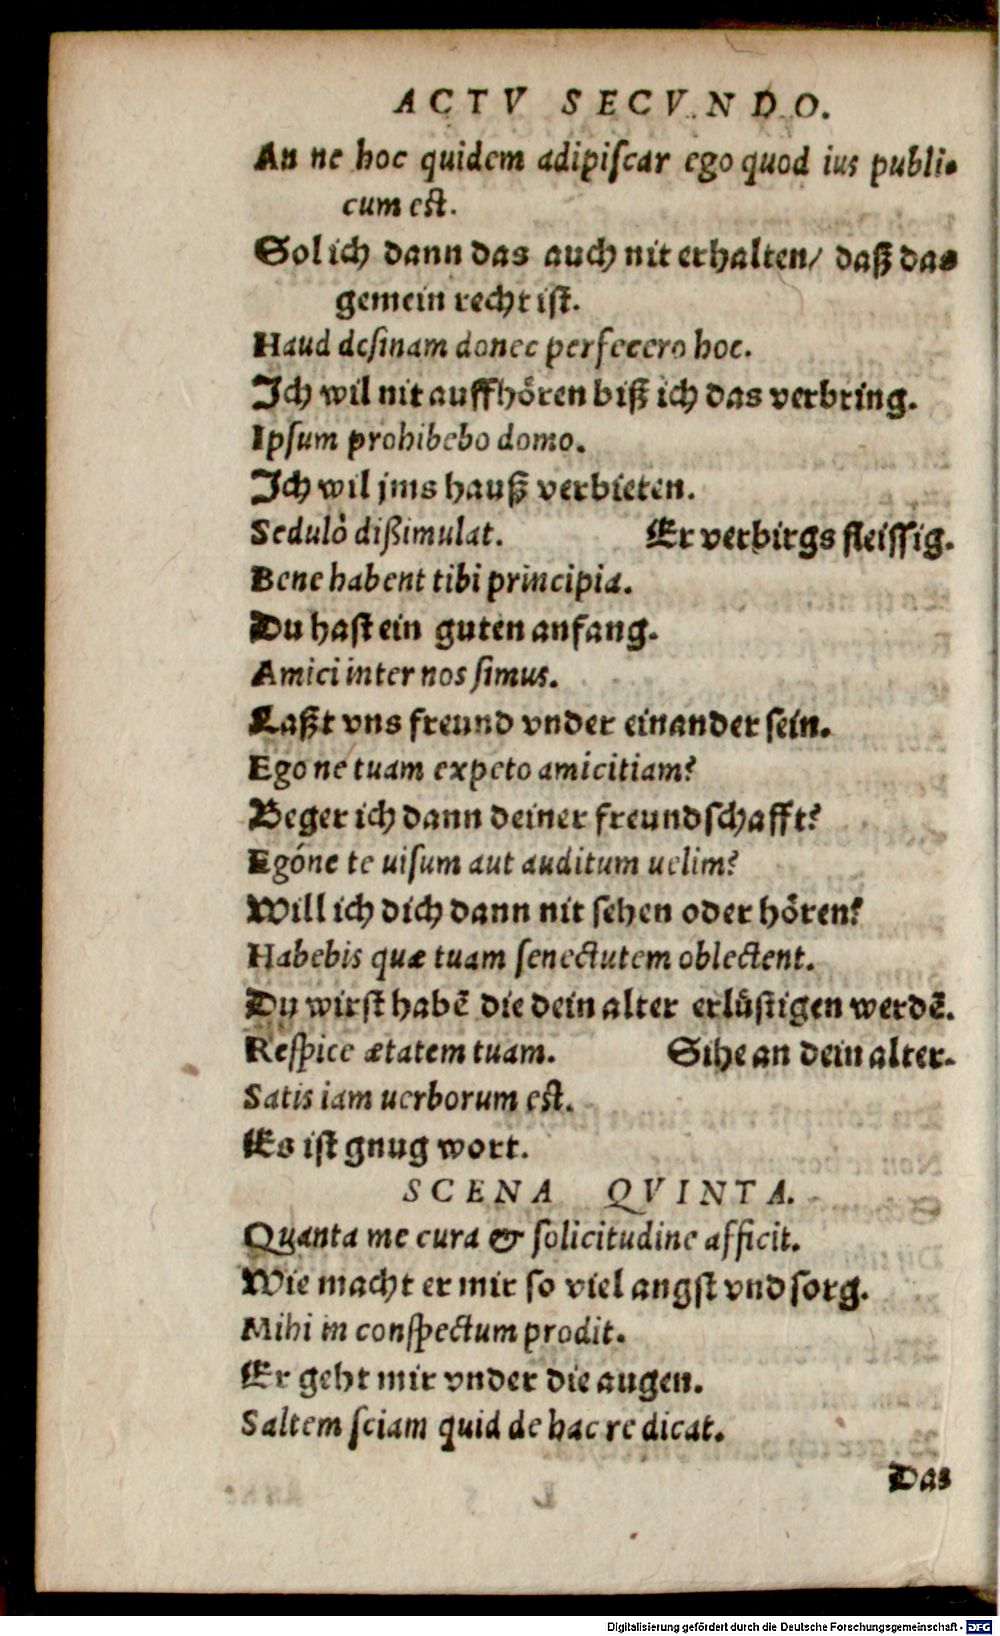 ACTV SECVNDO.
An ne hoc quidem adipiſcar ego quod ius publi-
cum eſt.
Sol ich dann das auch nit erhalten/ daß das
gemein recht iſt.
Haud deſinam donec perfecero hoc.
Ich wil nit auffhoͤren biß ich das verbring.
Ipſum prohibebo domo.
Ich wil jms hauß verbieten.
Sedulò dißimulat. Er verbirgs fleiſſig.
Bene habent tibi principia.
Du haſt ein guten anfang.
Amici inter nos ſimus.
Laßt vns freund vnder einander ſein.
Ego ne tuam expeto amicitiam?
Beger ich dann deiner freundſchafft?
Egóne te uiſum aut auditum uelim?
Will ich dich dann nit ſehen oder hoͤren?
Habebis quæ tuam ſenectutem oblectent.
Du wirſt habē die dein alter erluͤſtigen werdē.
Reſpice ætatem tuam. Sihe an dein alter.
Satis iam uerborum eſt.
Es iſt gnug wort.
SCENA QVINTA.
Quanta me cura & ſolicitudine afficit.
Wie macht er mir ſo viel angſt vnd ſorg.
Mihi in conſpectum prodit.
Er geht mir vnder die augen.
Saltem ſciam quid de hac re dicat.
Das
Digitalisierung gefördert durch die Deutsche Forschungsgemeinschaft - DFG